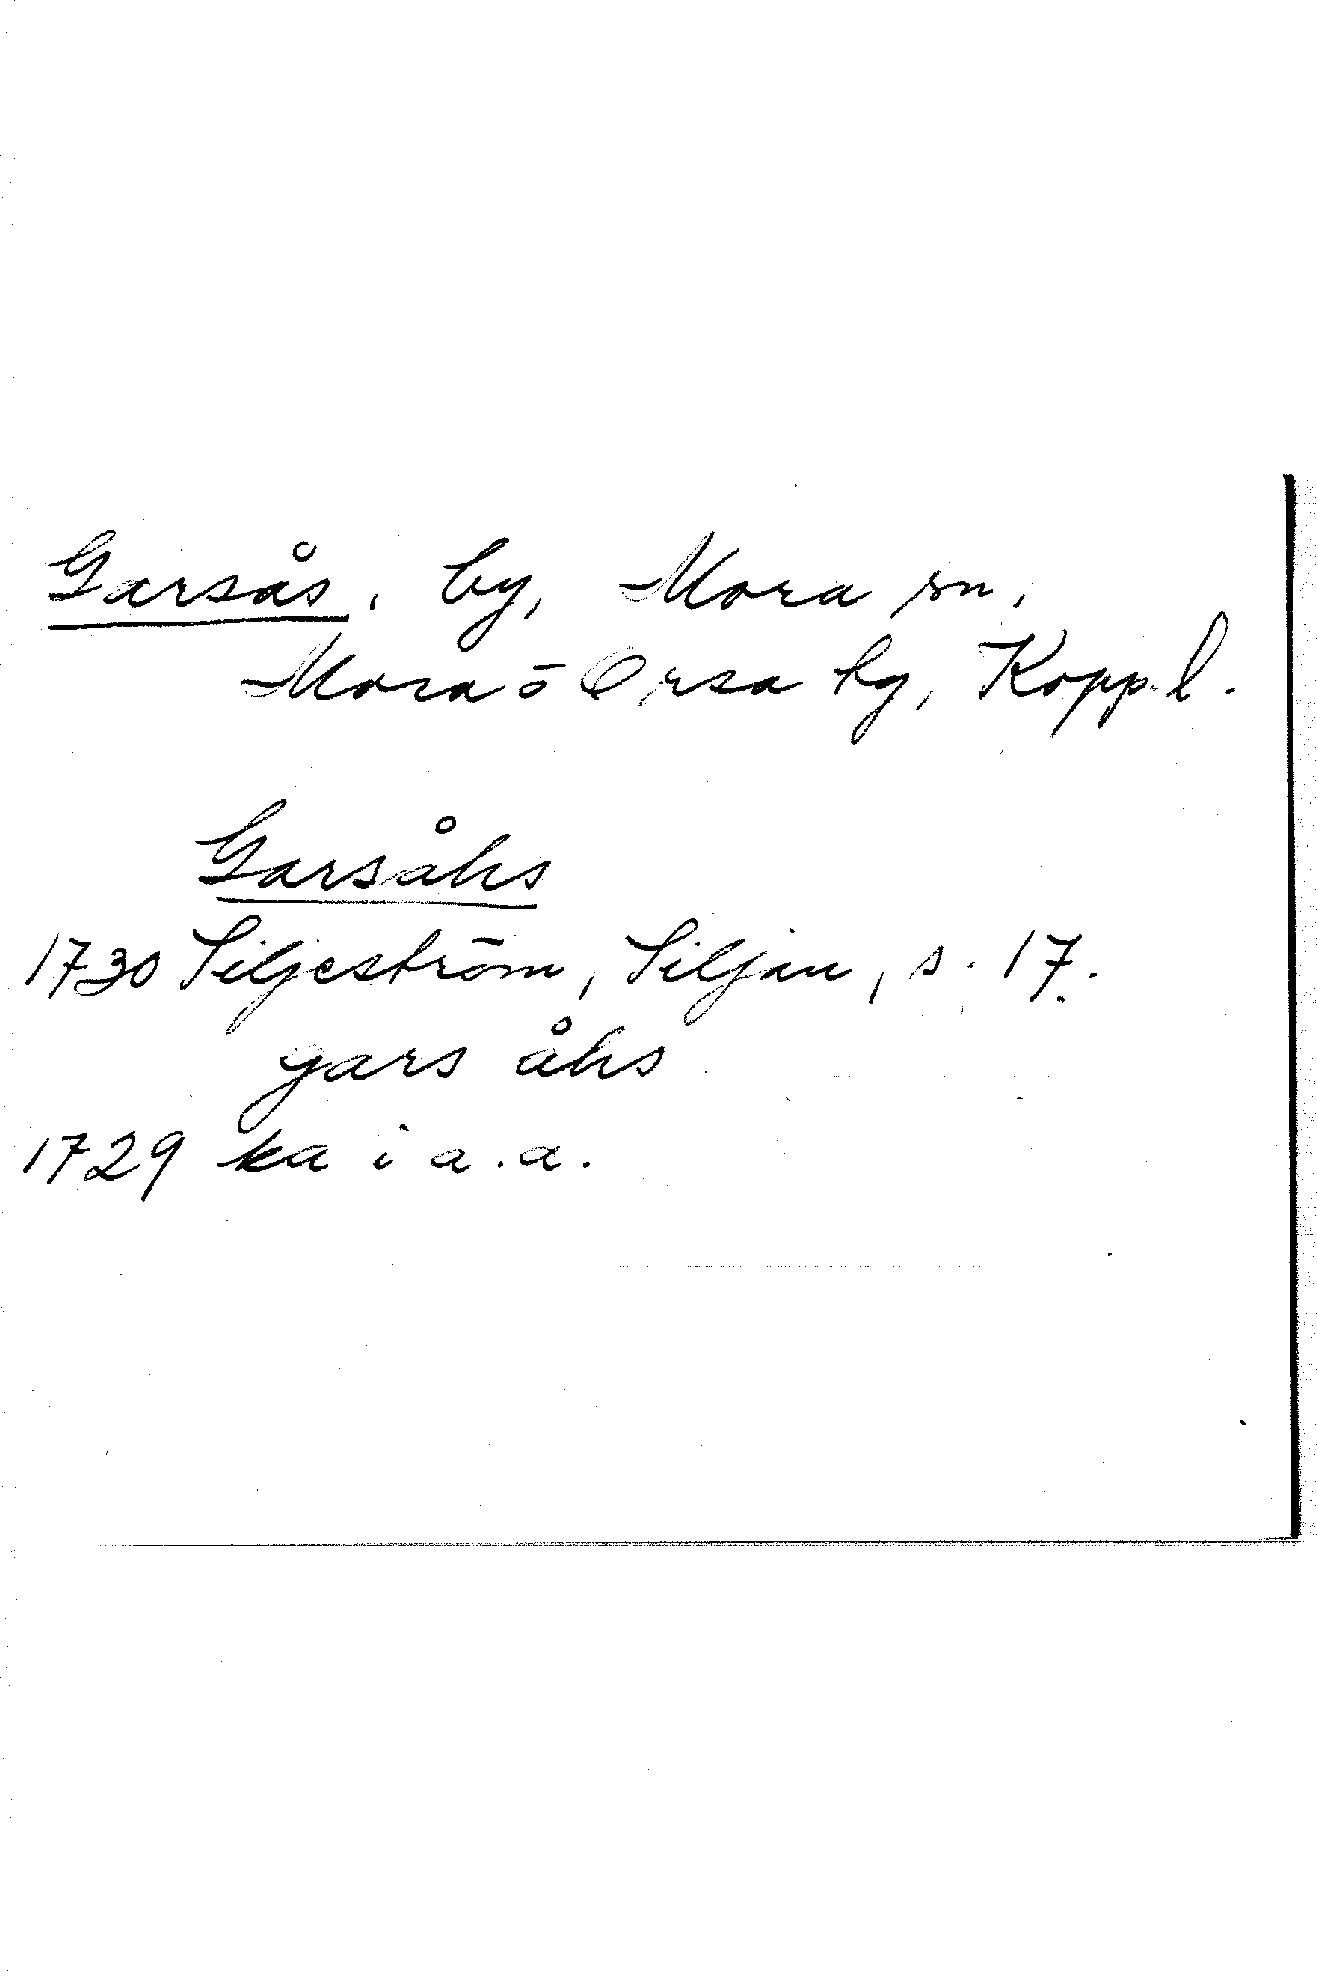 Garsås, by, Mora sn,
Mora ö Orsa tg, Kopp. l.
Garsåhs
1730 Siljeström, Siljan, s. 17.
gars åhs
1729 ka i a.a.